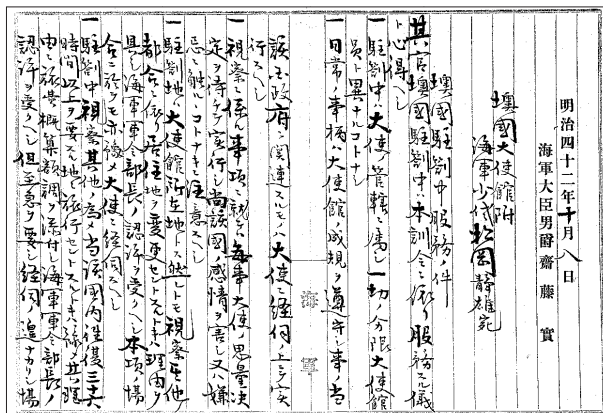 明治四十二年十月八日
海軍大臣男爵齋藤實
墺國大使館附
海軍少佐松岡静雄宛
墺國駐劄中服務ノ件
其ノ官墺國駐劄中ハ本訓令ニ依リ服務スル儀
ト心得ヘシ
一 駐劄中ハ大使ノ管轄ニ属シ一切ノ分限大使館
員ト異ナルコトナシ
一 日常ノ事柄ハ大使館ノ成規ヲ遵守シ事ノ当
該國政府ニ関連スルモノハ大使ニ経伺ノ上之ヲ実
行スヘシ
海軍
一 視察ニ係ル事項ニ就テハ毎事大使ノ思量決
定ヲ待チテ実行シ尚該國ノ感情ヲ害シ又ハ嫌
忌ニ触ルヽコトナキニ注意スヘシ
一 駐劄地ハ大使館所在地トス然レトモ視察其他ノ
都合ニ依リ居住地ヲ変更セントスルトキハ理由ヲ
具シ海軍軍令部長ノ認許ヲ受クヘシ本項ノ場
合ニ於テモ亦豫メ大使ニ経伺スヘシ
一 駐劄中視察其他ノ為メ当該國内往復三十六
時間以上ヲ要スル地ニ旅行セントスルトキハ豫メ其ノ理
由ニ旅費概算額調ヲ添付シ海軍軍令部長ノ
認許ヲ受クヘシ但至急ヲ要シ経伺ノ遑ナカリシ場